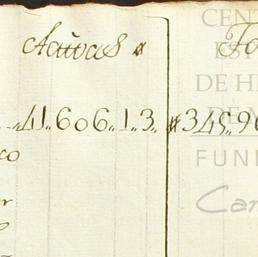 Activas #
CEN
ES
DE H
DE M
41.606.1.3. # 345.96
co
FUN
Car
r